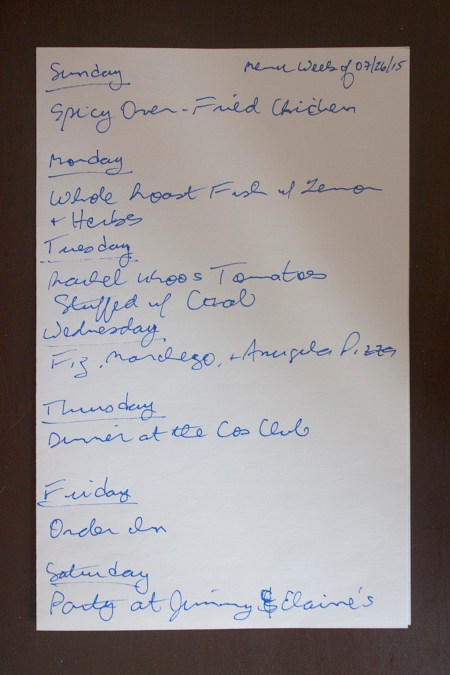 Sunday
Menu Week of 07/26/15
Spicy Oven-Fried Chicken
Monday
Whole Roast Fish w/ Lemon
+ Herbs
Tuesday
Rachel Khoos Tomatoes
Stuffed w/
Wednesday
Fig, Manchego, + Arugula Pizza
Thursday
Dinner at the Cos Club
Friday
Order In
Saturday
Party at Jimmy & Elaine's